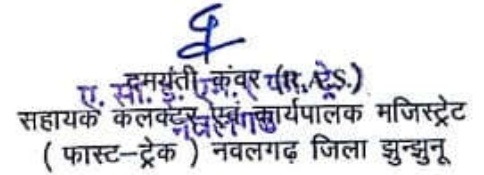 दमयंती कंवर (R.A.S.)
सहायक कलक्टर एवं कार्यपालक मजिस्ट्रेट
( फास्ट-ट्रेक ) नवलगढ़ जिला झुन्झुनू
नवलगढ़